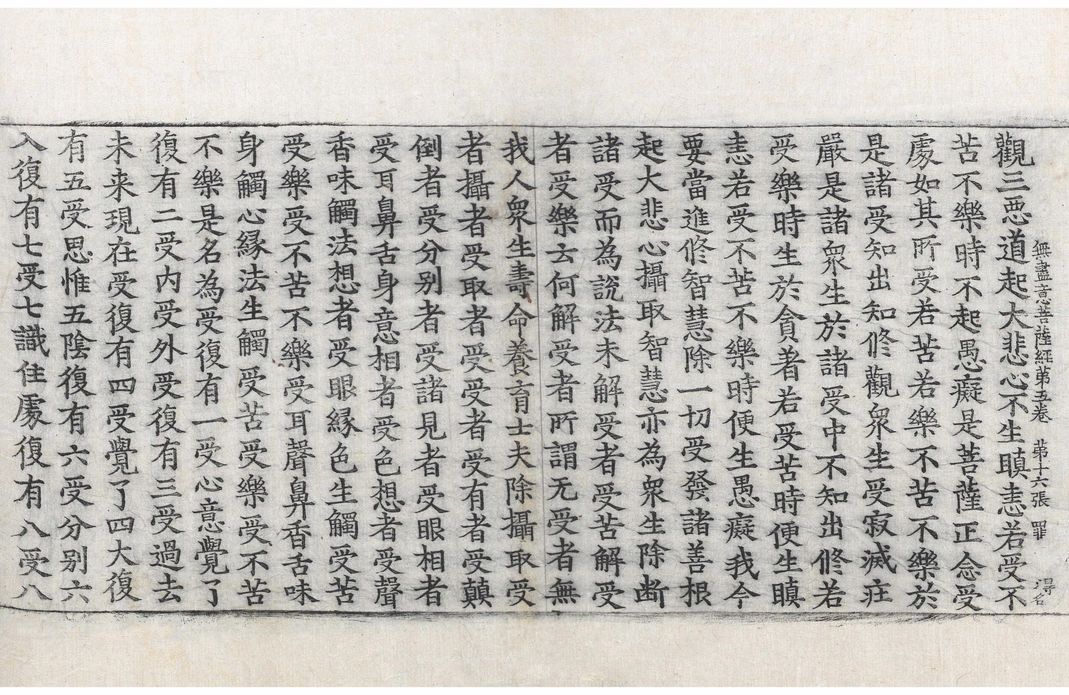 無盡意菩薩経第五卷　苐十六張　罪　得名
觀三悪道起大悲心不生瞋恚若受不
苦不樂時不起愚癡是菩薩正念受
處如其所受若苦若樂不苦不樂於
是諸受知出知修觀衆生受寂滅莊
嚴是諸衆生於諸受中不知出修若
受樂時生於貪著若受苦時便生瞋
恚若受不苦不樂時便生愚癡我今
要當進修智慧除一切受發諸善根
起大悲心攝取智慧亦為衆生除断
諸受而為説法未解受者受苦解受
者受樂云何解受者所謂无受者無
我人衆生壽命養育士夫除攝取受
者攝者受取者受受者受有者受顛
倒者受分别者受諸見者受眼相者
受耳鼻舌身意相者受色想者受聲
香味觸法想者受眼緣色生觸受苦
受樂受不苦不樂受耳聲鼻香舌味
身觸心緣法生觸受苦受樂受不苦
不樂是名為受復有一受心意覺了
復有二受内受外受復有三受過去
未来現在受復有四受覺了四大復
有五受思惟五陰復有六受分别六
入復有七受七識住處復有八受八